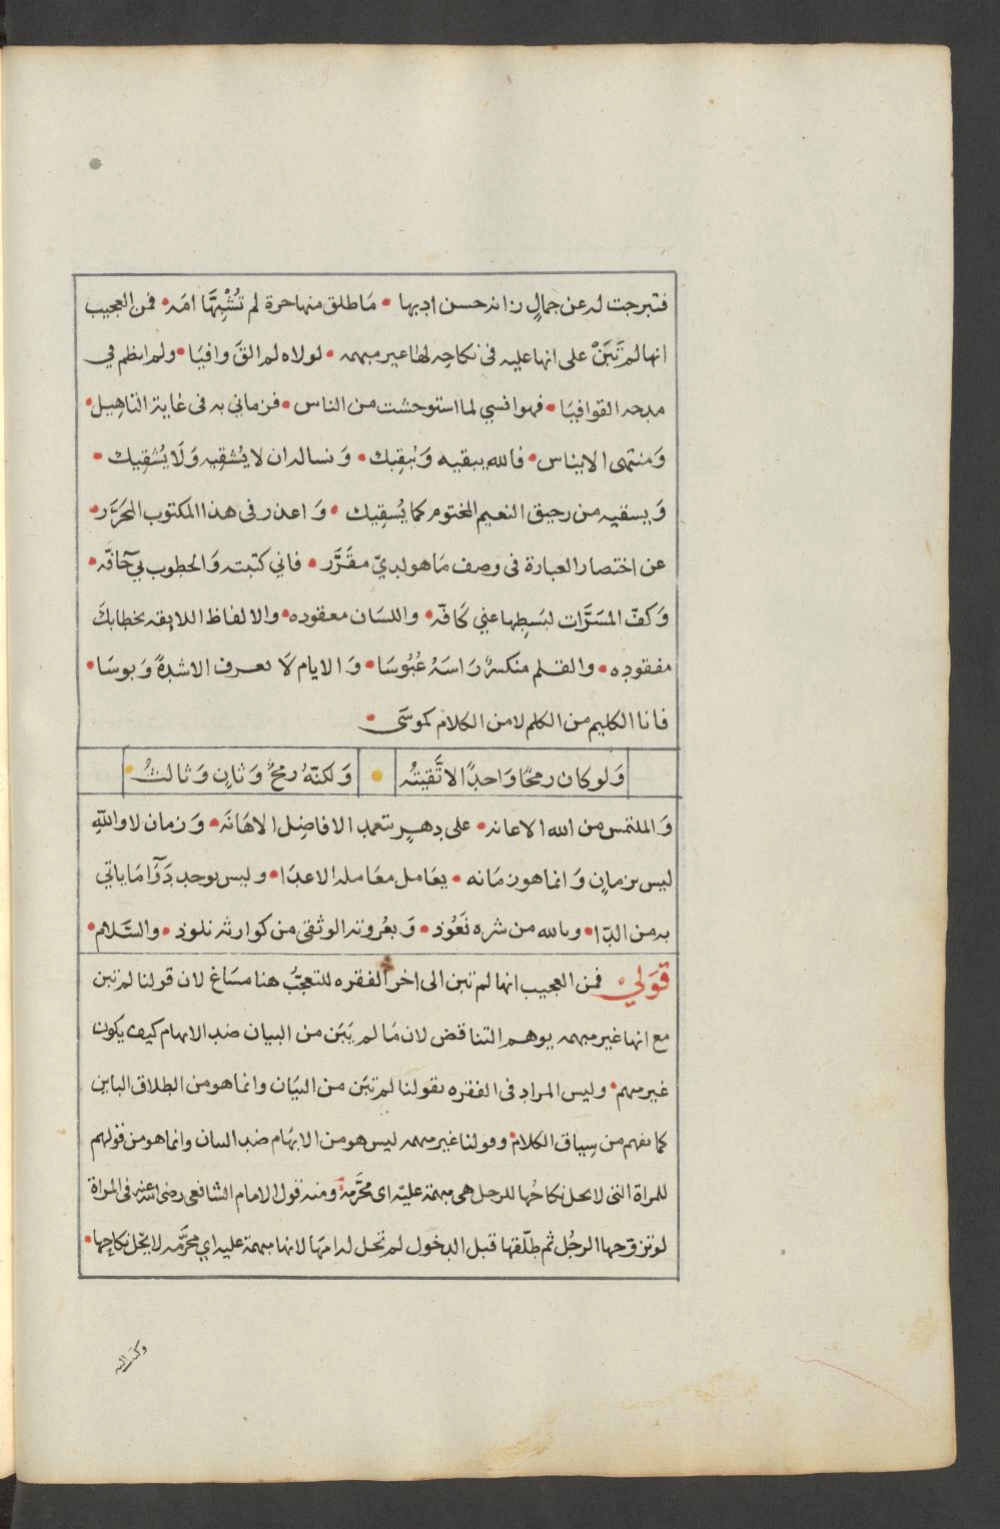 فتبرجت له عن جمالٍ زانه حسن ادبها • مَا طلق منها حرة لم تُشْبِهَّا امَه • فمن العجيب
انها لم تَبَنْ على انها عليه فى نكاحِه لها غير مبهمه • لولاه لم القَ وافيَا • ولم انظم في
مدحه القوافيَا • فهو انسي لما استوحشت من الناس • فزماني به فى غاية التاهيل •
وَمنتهى الايناس • فالله يبقيه وَيُبقيك • وَنساله ان لا يُشقِيه وَلَا يُشقيك •
وَيسقيه من رحيق النعيم المختوم كما يُسقِيك • وَاعذر فى هذا المكتوب المحَرَّر •
عن اختصار العبارة فى وصف مَا هو لديّ مقَرَّر • فاني كتبته وَالخطوب بي حَآفّه •
وَكفّ المسَرَّات لبَسطِها عني كَافّه • واللسَان معقوده • والالفاظ اللايقه بخطابكَ
مفقوده • والقلم منكسٌ رَاسَهُ عُبُوسَا • وَالايام لَا تعرف الا شدةً وَبوسَا •
فانا الكليم من الكلم لا من الكلام كموسَى •
وَلو كان رمحًا وَاحدًا لاتَّقيتُه • وَلكنّهُ رمحٌ وَثانٍ وَثالثُ •
وَالملتمس من الله الاعانه • على دهرٍ يتعمد الافاضِل الاهَانَه • وَزمان لا والله
ليس بزمانٍ وَانما هو زمَانه • يعَامل معَاملة الاعدَا • وليس يوجد دَوَآ مَا ياتي
به من الدّا • وبالله من شره نَعُوذ • وَبعُروته الوثقى من كوارثه نلوذ • والسَّلام •
قَولي فمن العجيب انها لم تبن الى اخر الفقره للتعجّب هنا مسَاغ لان قولنا لم تبن
مع انها غير مبهمه يوهم التناقض لان مَا لم يَبَن من البيان ضد الابهام كيف يكون
غير مبهم • وليس المراد فى الفقره بقولنا لم تبَن من البيَان وانما هو من الطلاق الباين
كما يفهم من سِياق الكلام • وقولنا غير مبهمه ليس هو من الابهَام ضد البيان وانما هو من قولهم
للمراة التى لا يحل نكاحُها للرجل هى مبهمة عليّه اى محَّرمة ومنه قول الامام الشافعى رضى الله عنه فى المراة
لو تزوّجها الرجُل ثم طلّقها قبل الدخول لم تحل له امهَا لانها مبهمة عليه اي محرَّمه لا يحّل نكاحِها •